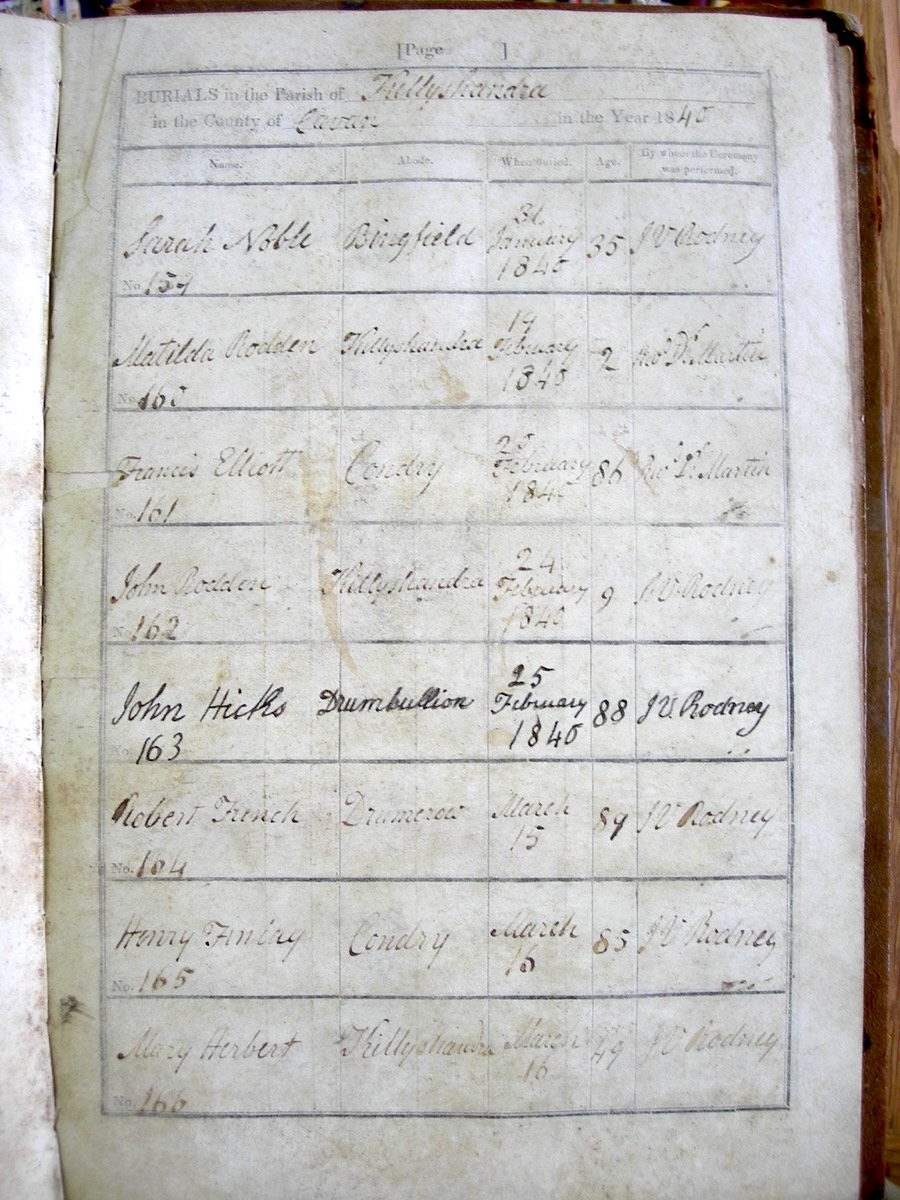 [Page ]
BURIALS in the Parish of Killyshandra
in the County of Cavan in the Year 1840
Name. Abode. When buried. Age. By whom the Ceremony was performed.
Sarah Noble Bingfield 31 January 1840 35 J V Rodney
No. 159
Matilda Rodden Killyshandra 19 February 1840 2 Martin
No. 160
Francis Elliott Condry February 1840 86 Martin
No. 161
John Rodden Killyshandra 24 February 1840 9 J V Rodney
No. 162
John Hicks Drumbullion 25 February 1840 88 J V. Rodney
No. 163
Robert French Drumerow March 15 89 J V Rodney
No. 164
Henry Finlay Condry March 16 85 J V Rodney
No. 165
Mary Herbert Killyshandra March 16 49 J V Rodney
No. 166